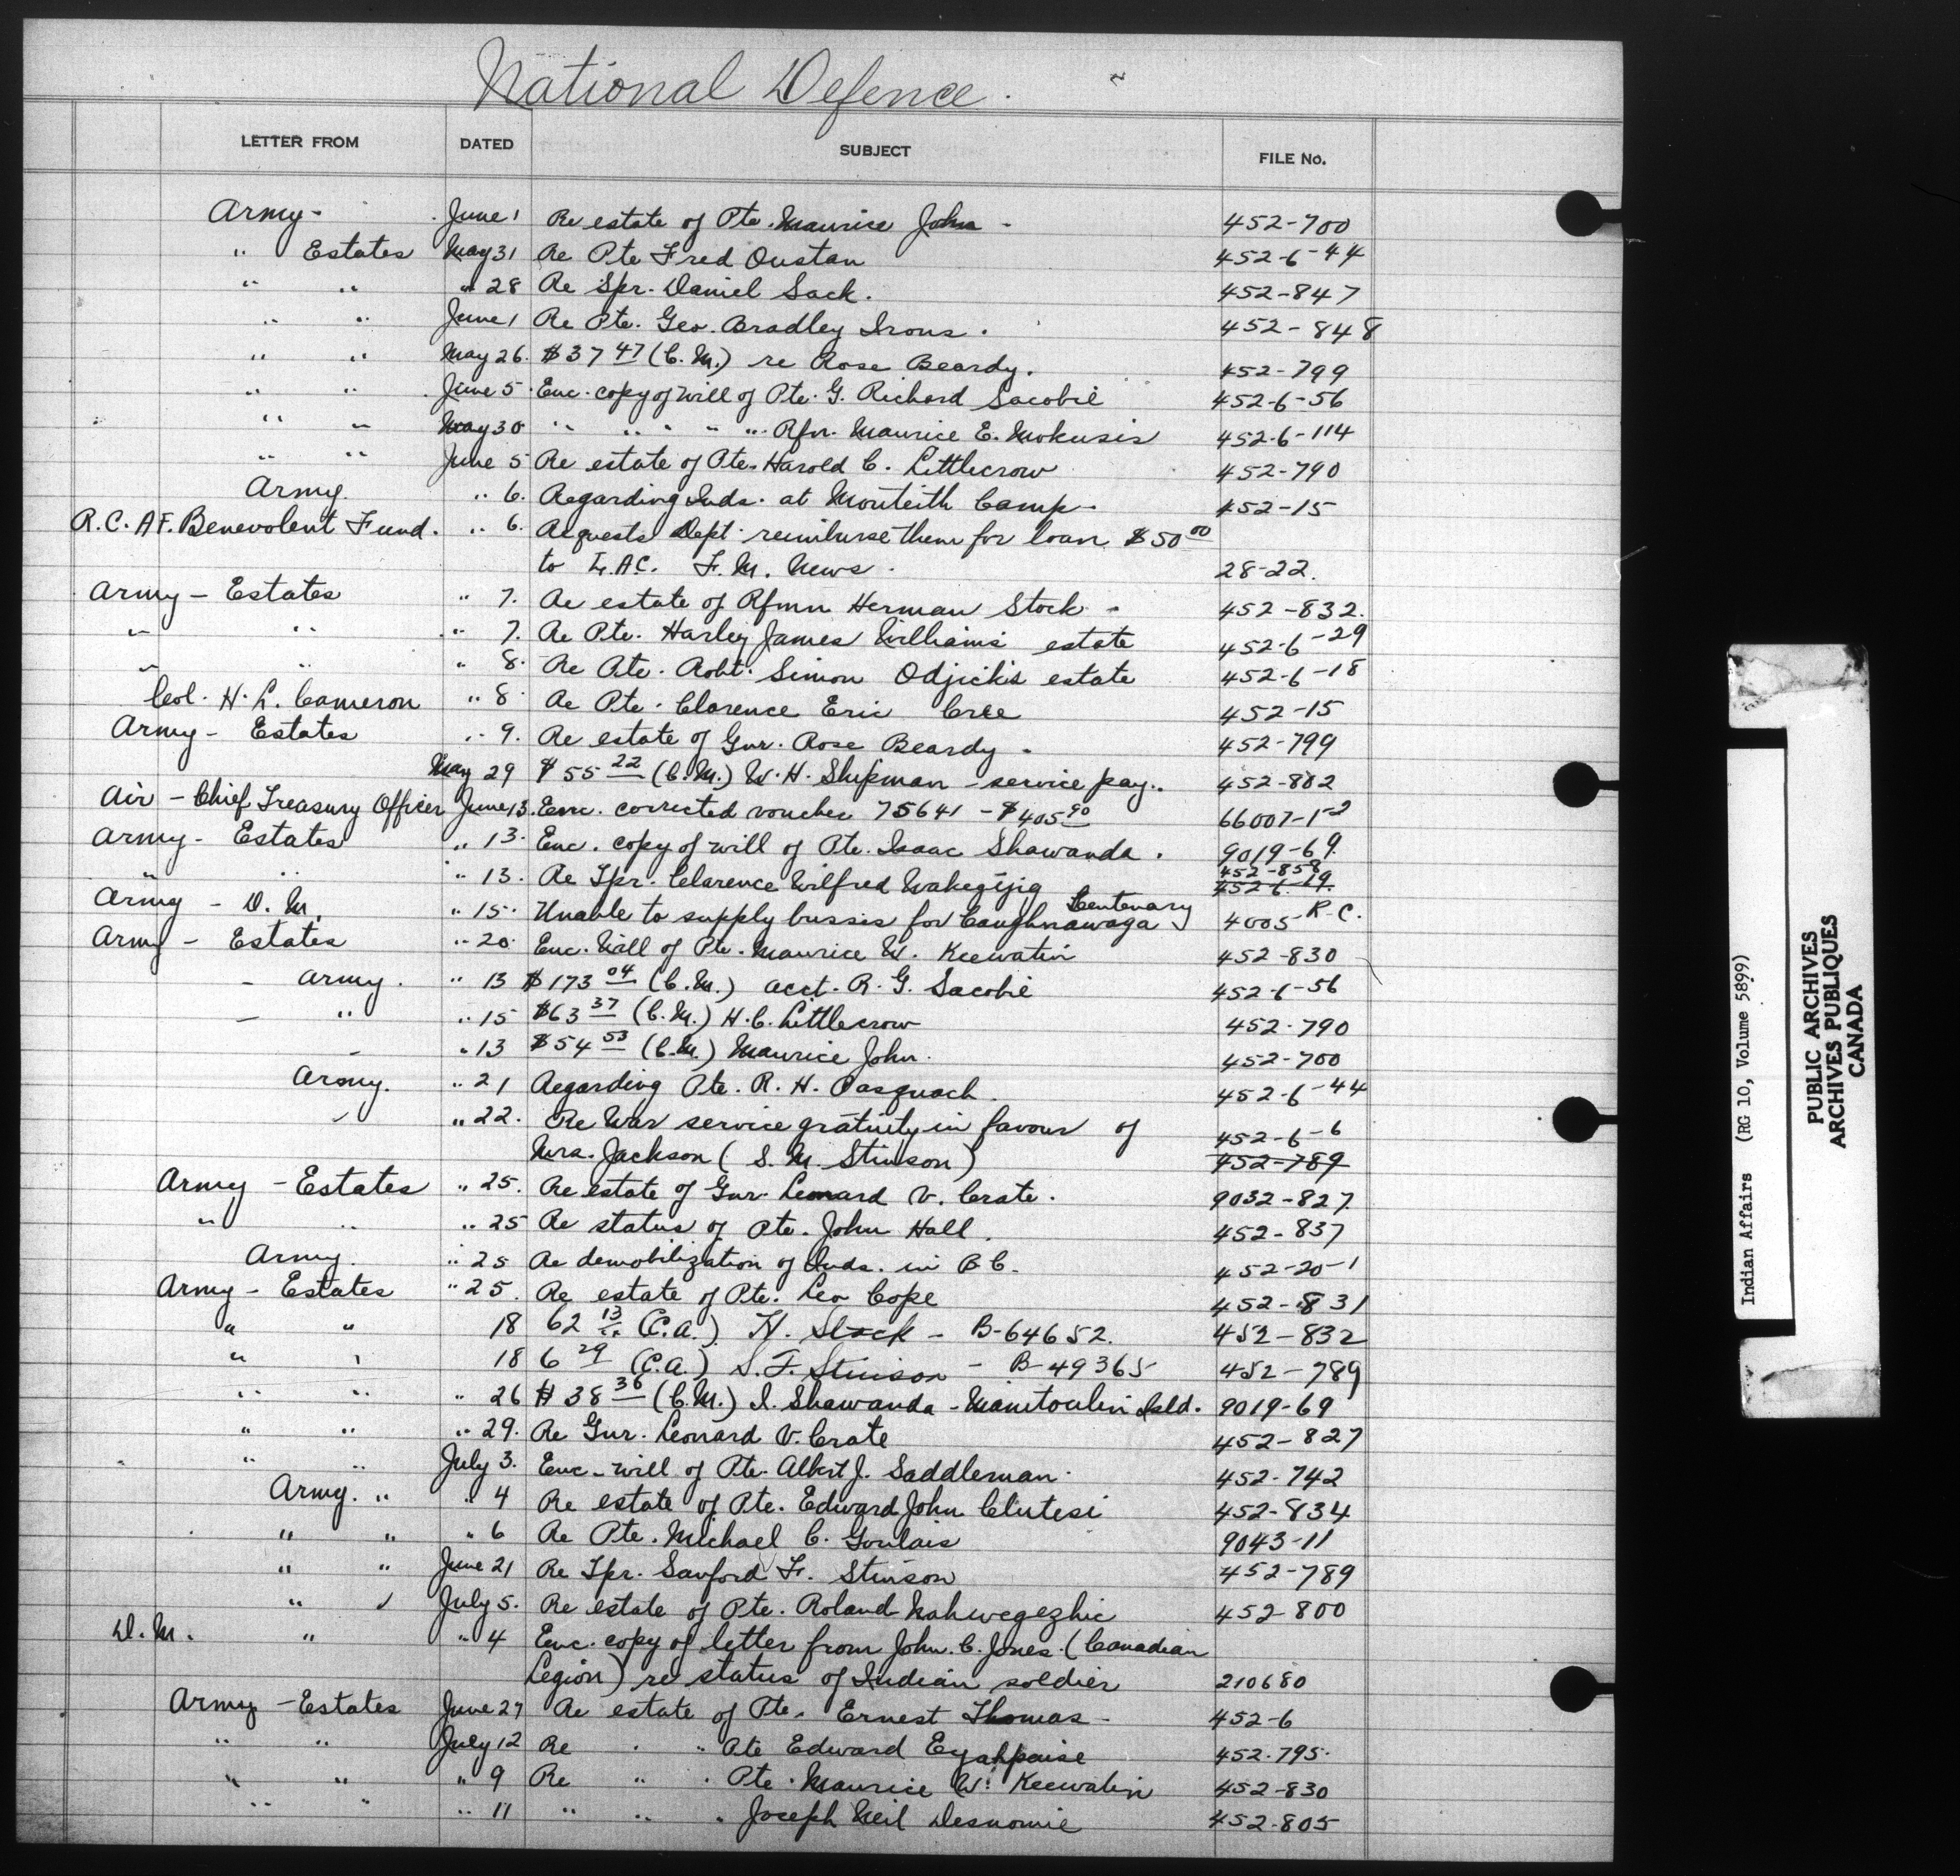 National Defence.
LETTER FROM DATED SUBJECT FILE No.
Army- June 1 Re estate of Pte. Maurice John - 452-700
" Estates May 31 Re Pte Fred Oustan 452-6-44
" " " 28 Re Spr. Daniel Sack. 452-847
" " June 1 Re Pte. Geo. Bradley Irons. 452-848
" " May 26. $37 47 (C.M.) re Rose Beardy. 452-799
" " June 5. Enc. copy of will of Pte. G. Richard Sacobie 452-6-56
" " May 30 " " " " " Rfn. Maurice E. Mokusis 452-6-114
" " June 5 Re estate of Pte. Harold C. Littlecrow 452-790
Army. " 6. Regarding Inds. at Monteith Camp- 452-15
R.C.A.F. Benevolent Fund. " 6. Requests Dept. reimburse them for loan $50 00
to L.A.C. F.M. News. 28-22.
Army - Estates " 7. Re estate of Rfmn Herman Stock - 452-832.
" " " 7. Re Pte. Harley James Williams' estate 452-6-29
" " " 8. Re Pte. Robt. Simon Odjick's estate 452-6-18
Col. H. L. Cameron " 8 Re Pte. Clarence Eric Cree 452-15
Army - Estates " 9. Re estate of Gnr. Rose Beardy. 452-799
May 29 $55 22 (C.M.) W.H. Shipman - service pay.. 452-802
Air - Chief Treasury Officer June 13. Enc. corrected voucher 75641 - $405 90 66007-1-2
Army - Estates " 13. Enc. copy of will of Pte. Isaac Shawanda. 9019-69.
" " " 13. Re Tpr. Clarence Wilfred Wakegijig 452-858 452-6-19.
Army - D.M. " 15. Unable to supply busses for Caughnawaga Centenary 4005-R-C.
Army - Estates " 20. Enc. Will of Pte. Maurice W. Keewatin 452-830
- Army. " 13 $173 04 (C.M.) acct. R. G. Sacobie 452-6-56
- " " 15 $63 37 (C.M.) H.C. Littlecrow 452-790
- " 13 $54 53 (C.M.) Maurice John. 452-700
Army. " 21 Regarding Pte. R. H. Pasquach. 452-6-44
" " 22. Re War service gratuity in favour of 452-6-6
Mrs. Jackson (S. M. Stinson) 452-789
Army - Estates " 25. Re estate of Gnr. Leonard V. Crate. 9032-827.
" " " 25 Re status of Pte. John Hall. 452-837
Army. " 25 Re demobilization of Inds. in B C. 452-20-1
Army - Estates " 25. Re estate of Pte. Leo Cope 452-831
" " 18 62 13 (C.A.) H. Stock - B-64652. 452-832
" " 18 6 29 (C.A.) S.F. Stinson - B-49365 452-789
" " " 26 $38 36 (C.M.) I. Shawanda - Manitoulin Isld. 9019-69
" " " 29. Re Gnr. Leonard V. Crate 452-827
" " July 3. Enc- will of Pte. Albert J. Saddleman. 452-742
Army. " " 4 Re estate of Pte. Edward John Clutesi 452-834
" " " 6 Re Pte. Michael C. Goulais 9043-11
" " June 21 Re Tpr. Sanford F. Stinson 452-789
" " July 5. Re estate of Pte. Roland Nahwegezhic 452-800
D.M. " " 4 Enc. copy of letter from John. C. Jones. (Canadian
Legion) re status of Indian soldier 210680
Army - Estates June 27 Re estate of Pte. Ernest Thomas - 452-6
" " July 12 Re " " Pte Edward Eyahpaise 452-795.
" " " 9 Re " " Pte. Maurice W. Keewatin 452-830
" " " 11 " " " Joseph Neil Desnomie 452-805
Indian Affairs (RG 10, Volume 5899)
PUBLIC ARCHIVES
ARCHIVES PUBLIQUES
CANADA